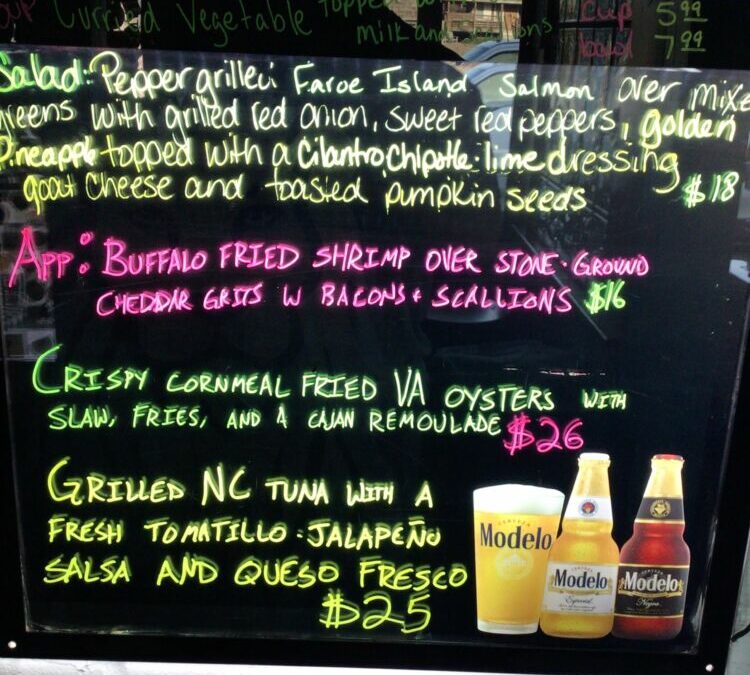 Curried Vegetable topped
milk and
Cup 5.99
bowl 7.99
Salad: Pepper grilled Faroe Island Salmon over mixe
greens with grilled red onion, sweet red peppers, golden
Pineapple topped with a Cilantro Chipotle-lime dressing
goat Cheese and toasted pumpkin seeds $18
App: BUFFALO FRIED SHRIMP OVER STONE-GROUND
CHEDDAR GRITS W BACONS + SCALLIONS $16
CRISPY CORNMEAL FRIED VA OYSTERS WITH
SLAW, FRIES, AND A CAJAN REMOULADE $26
GRILLED NC TUNA WITH A
FRESH TOMATILLO-JALAPEÑO
SALSA AND QUESO FRESCO
$25
Modelo
Modelo
Especial
Modelo
Negra